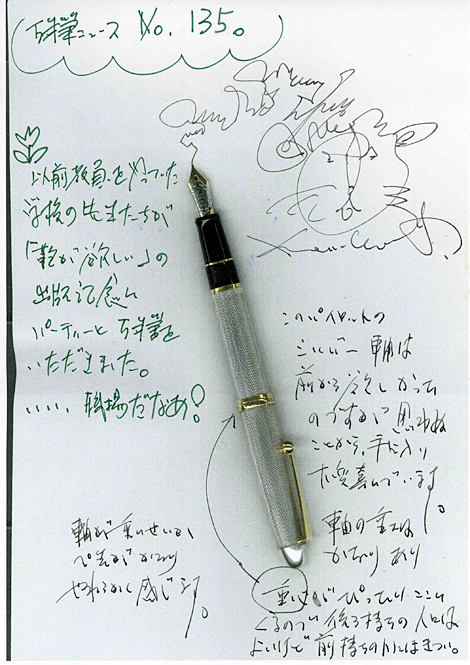 万年筆ニュース No. 135。
以前教員をやっていた
学校の先生たちが
「鞄が欲しい」の
出版記念に
パーティーと万年筆を
いただきました。
いい、職場だなあ!
このパイロットの
シルバー軸は
前から欲しかった
のですが思わぬ
ことから、手に入り
大変喜んでいます。
軸の重さは
かなりあり
重さがぴったりここに
くるので後ろ持ちの人には
よいけど前持ちの人にはきつい。
軸が重いせいか
ペン先がかなり
やわらかく感じます。